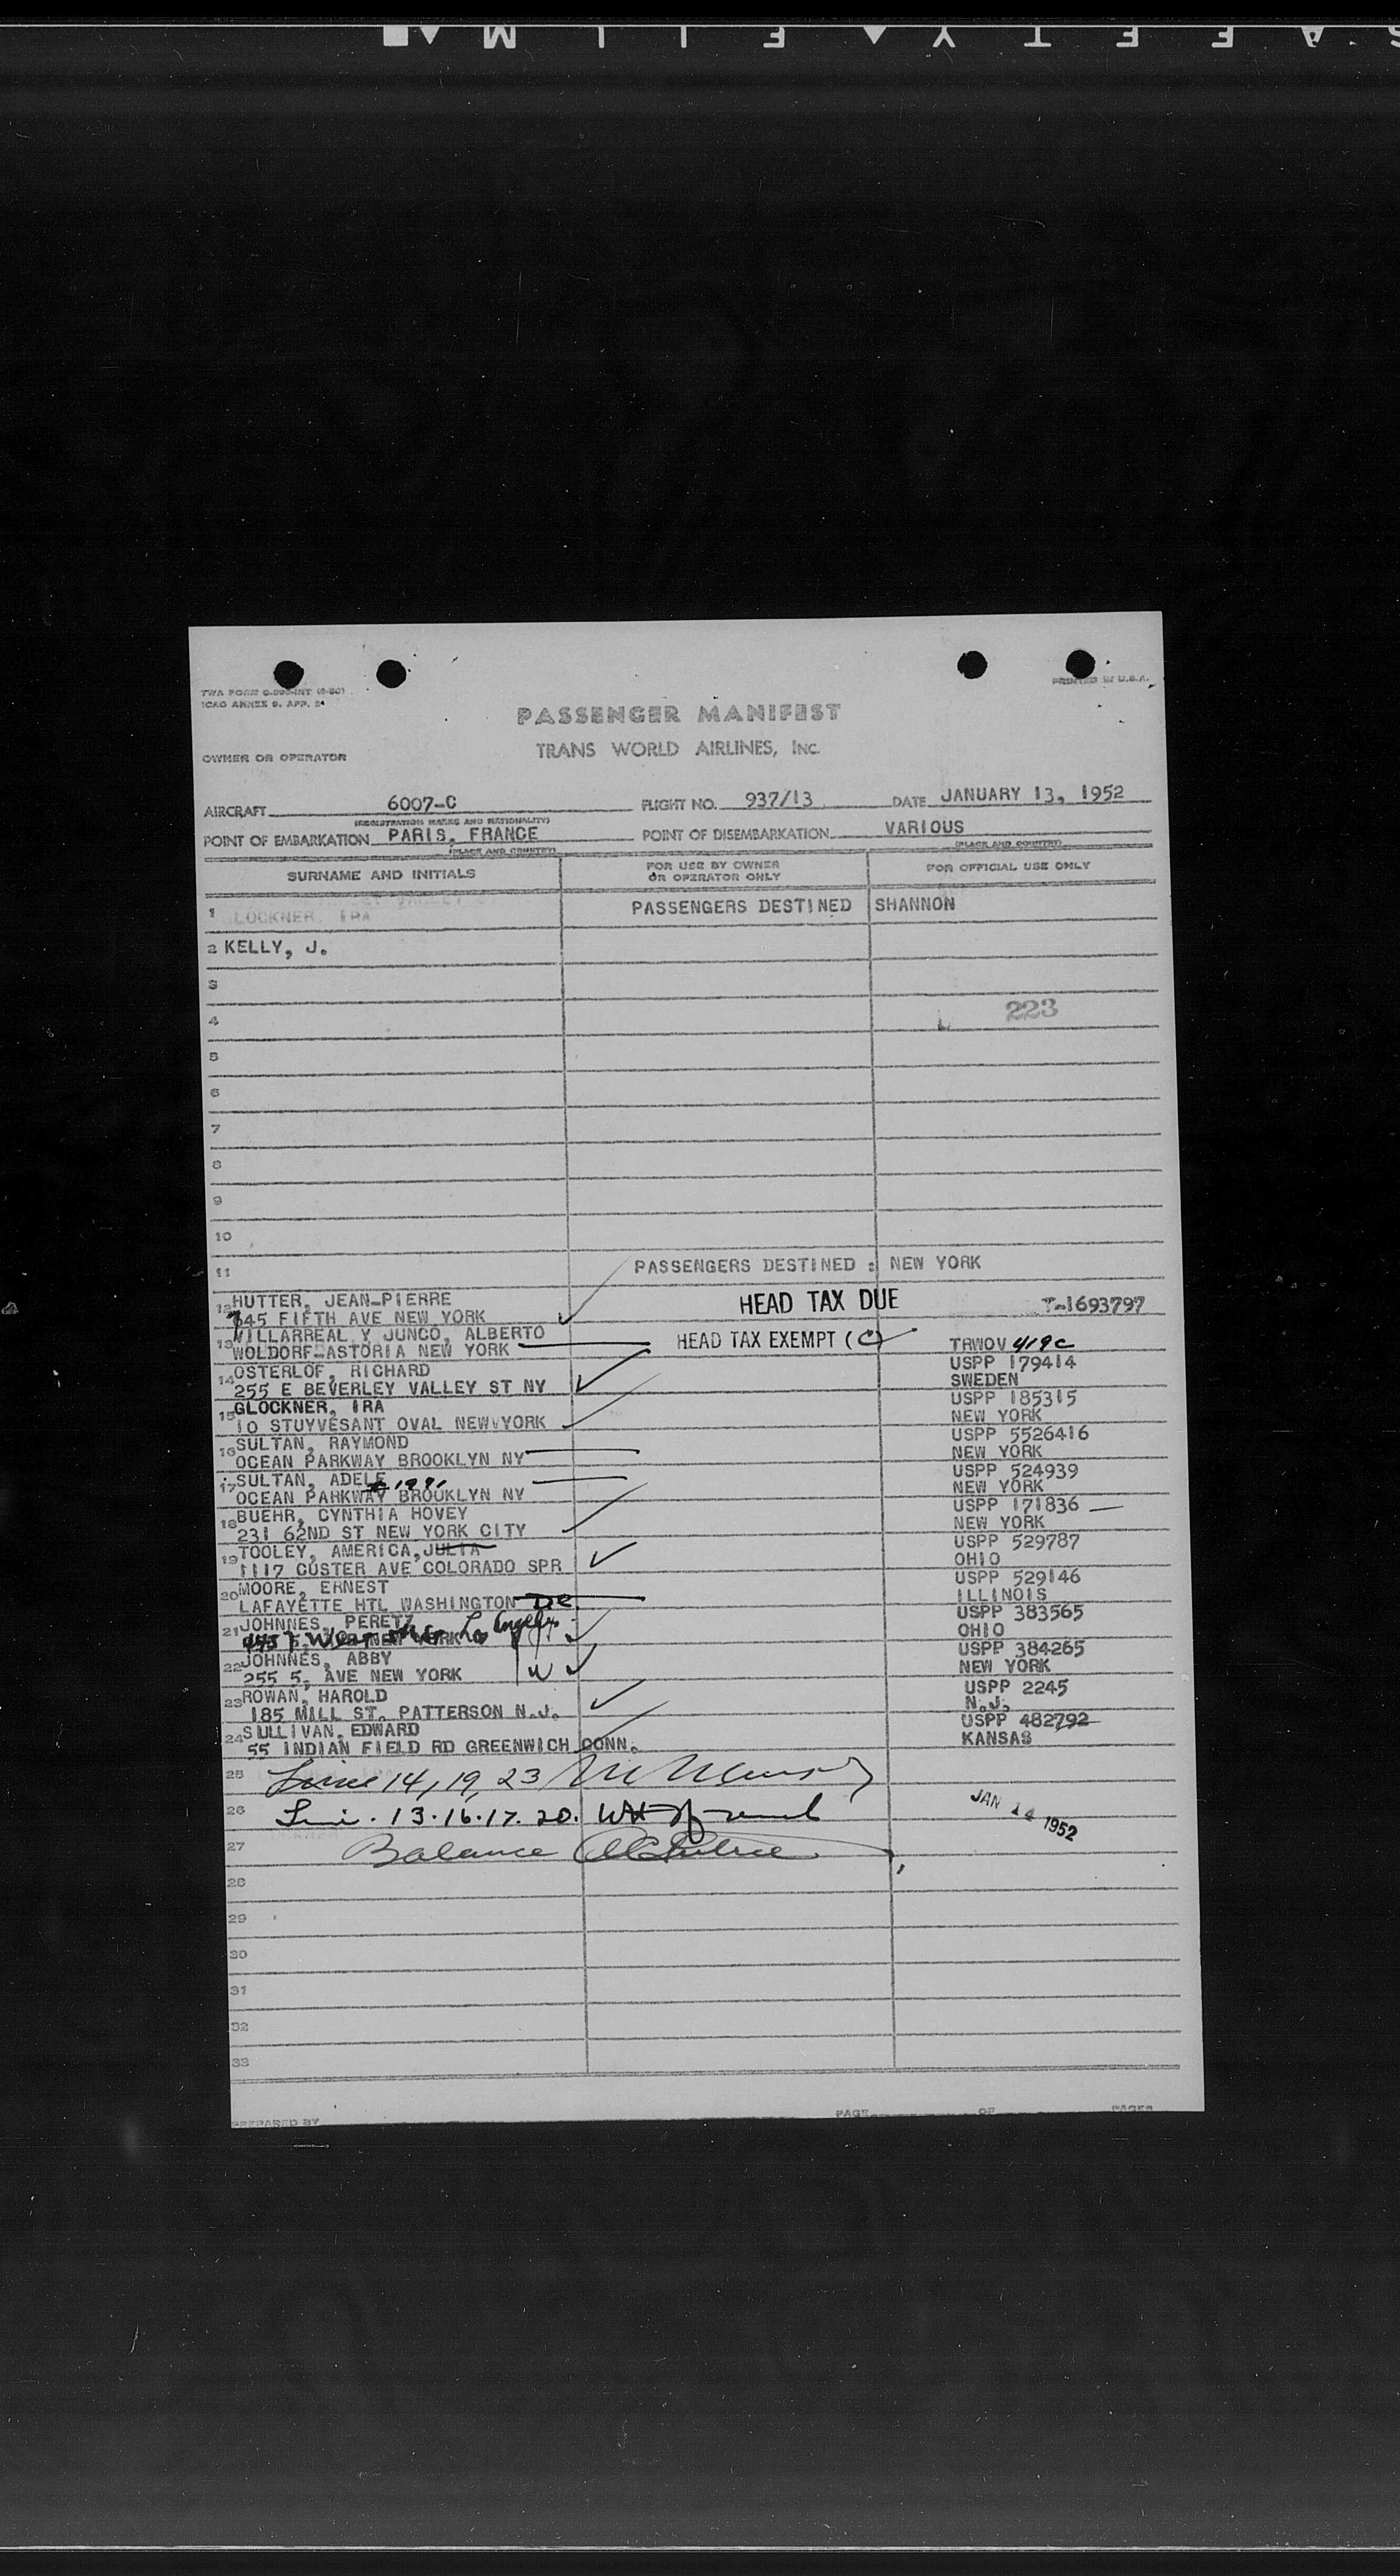 SAFETY FILM
TWA FORM
PRINTED IN U.S.A.
ICAO ANNEX 9. APP. 2
PASSENGER MANIFEST
OWNER OR OPERATOR
TRANS WORLD AIRLINES, INC.
AIRCRAFT 6007-C FLIGHT NO. 937/13 DATE JANUARY 13, 1952
(REGISTRATION MARKS AND NATIONALITY)
POINT OF EMBARKATION PARIS, FRANCE POINT OF DISEMBARKATION VARIOUS
(PLACE AND COUNTRY) (PLACE AND COUNTRY)
SURNAME AND INITIALS FOR USE BY OWNER OR OPERATOR ONLY FOR OFFICIAL USE ONLY
1 GLOCKNER, IRA PASSENGERS DESTINED SHANNON
2 KELLY, J.
3
4 223
5
6
7
8
9
10
11 PASSENGERS DESTINED : NEW YORK
12 HUTTER, JEAN-PIERRE HEAD TAX DUE T-1693797
745 FIFTH AVE NEW YORK
13 VILLARREAL Y JUNCO, ALBERTO HEAD TAX EXEMPT (C) TRWOV 419C
WOLDORF-ASTORIA NEW YORK
14 OSTERLOF, RICHARD USPP 179414
255 E BEVERLEY VALLEY ST NY SWEDEN
15 GLOCKNER, IRA USPP 185315
10 STUYVESANT OVAL NEW YORK NEW YORK
16 SULTAN, RAYMOND USPP 5526416
OCEAN PARKWAY BROOKLYN NY NEW YORK
17 SULTAN, ADELE USPP 524939
OCEAN PARKWAY BROOKLYN NY NEW YORK
18 BUEHR, CYNTHIA HOVEY USPP 171836
231 62ND ST NEW YORK CITY NEW YORK
19 TOOLEY, AMERICA, JULIA USPP 529787
1117 CUSTER AVE COLORADO SPR OHIO
20 MOORE, ERNEST USPP 529146
LAFAYETTE HTL WASHINGTON DC ILLINOIS
21 JOHNNES, PERETZ USPP 383565
Los Angeles OHIO
22 JOHNNES, ABBY USPP 384265
255 5, AVE NEW YORK W NEW YORK
23 ROWAN, HAROLD USPP 2245
185 MILL ST. PATTERSON N.J. N.J.
24 SULLIVAN, EDWARD USPP 482792
55 INDIAN FIELD RD GREENWICH CONN. KANSAS
25 Line 14, 19, 23
26 13.16.17.20. JAN 14 1952
27 Balance
28
29
30
31
32
33
PREPARED BY PAGE OF PAGES